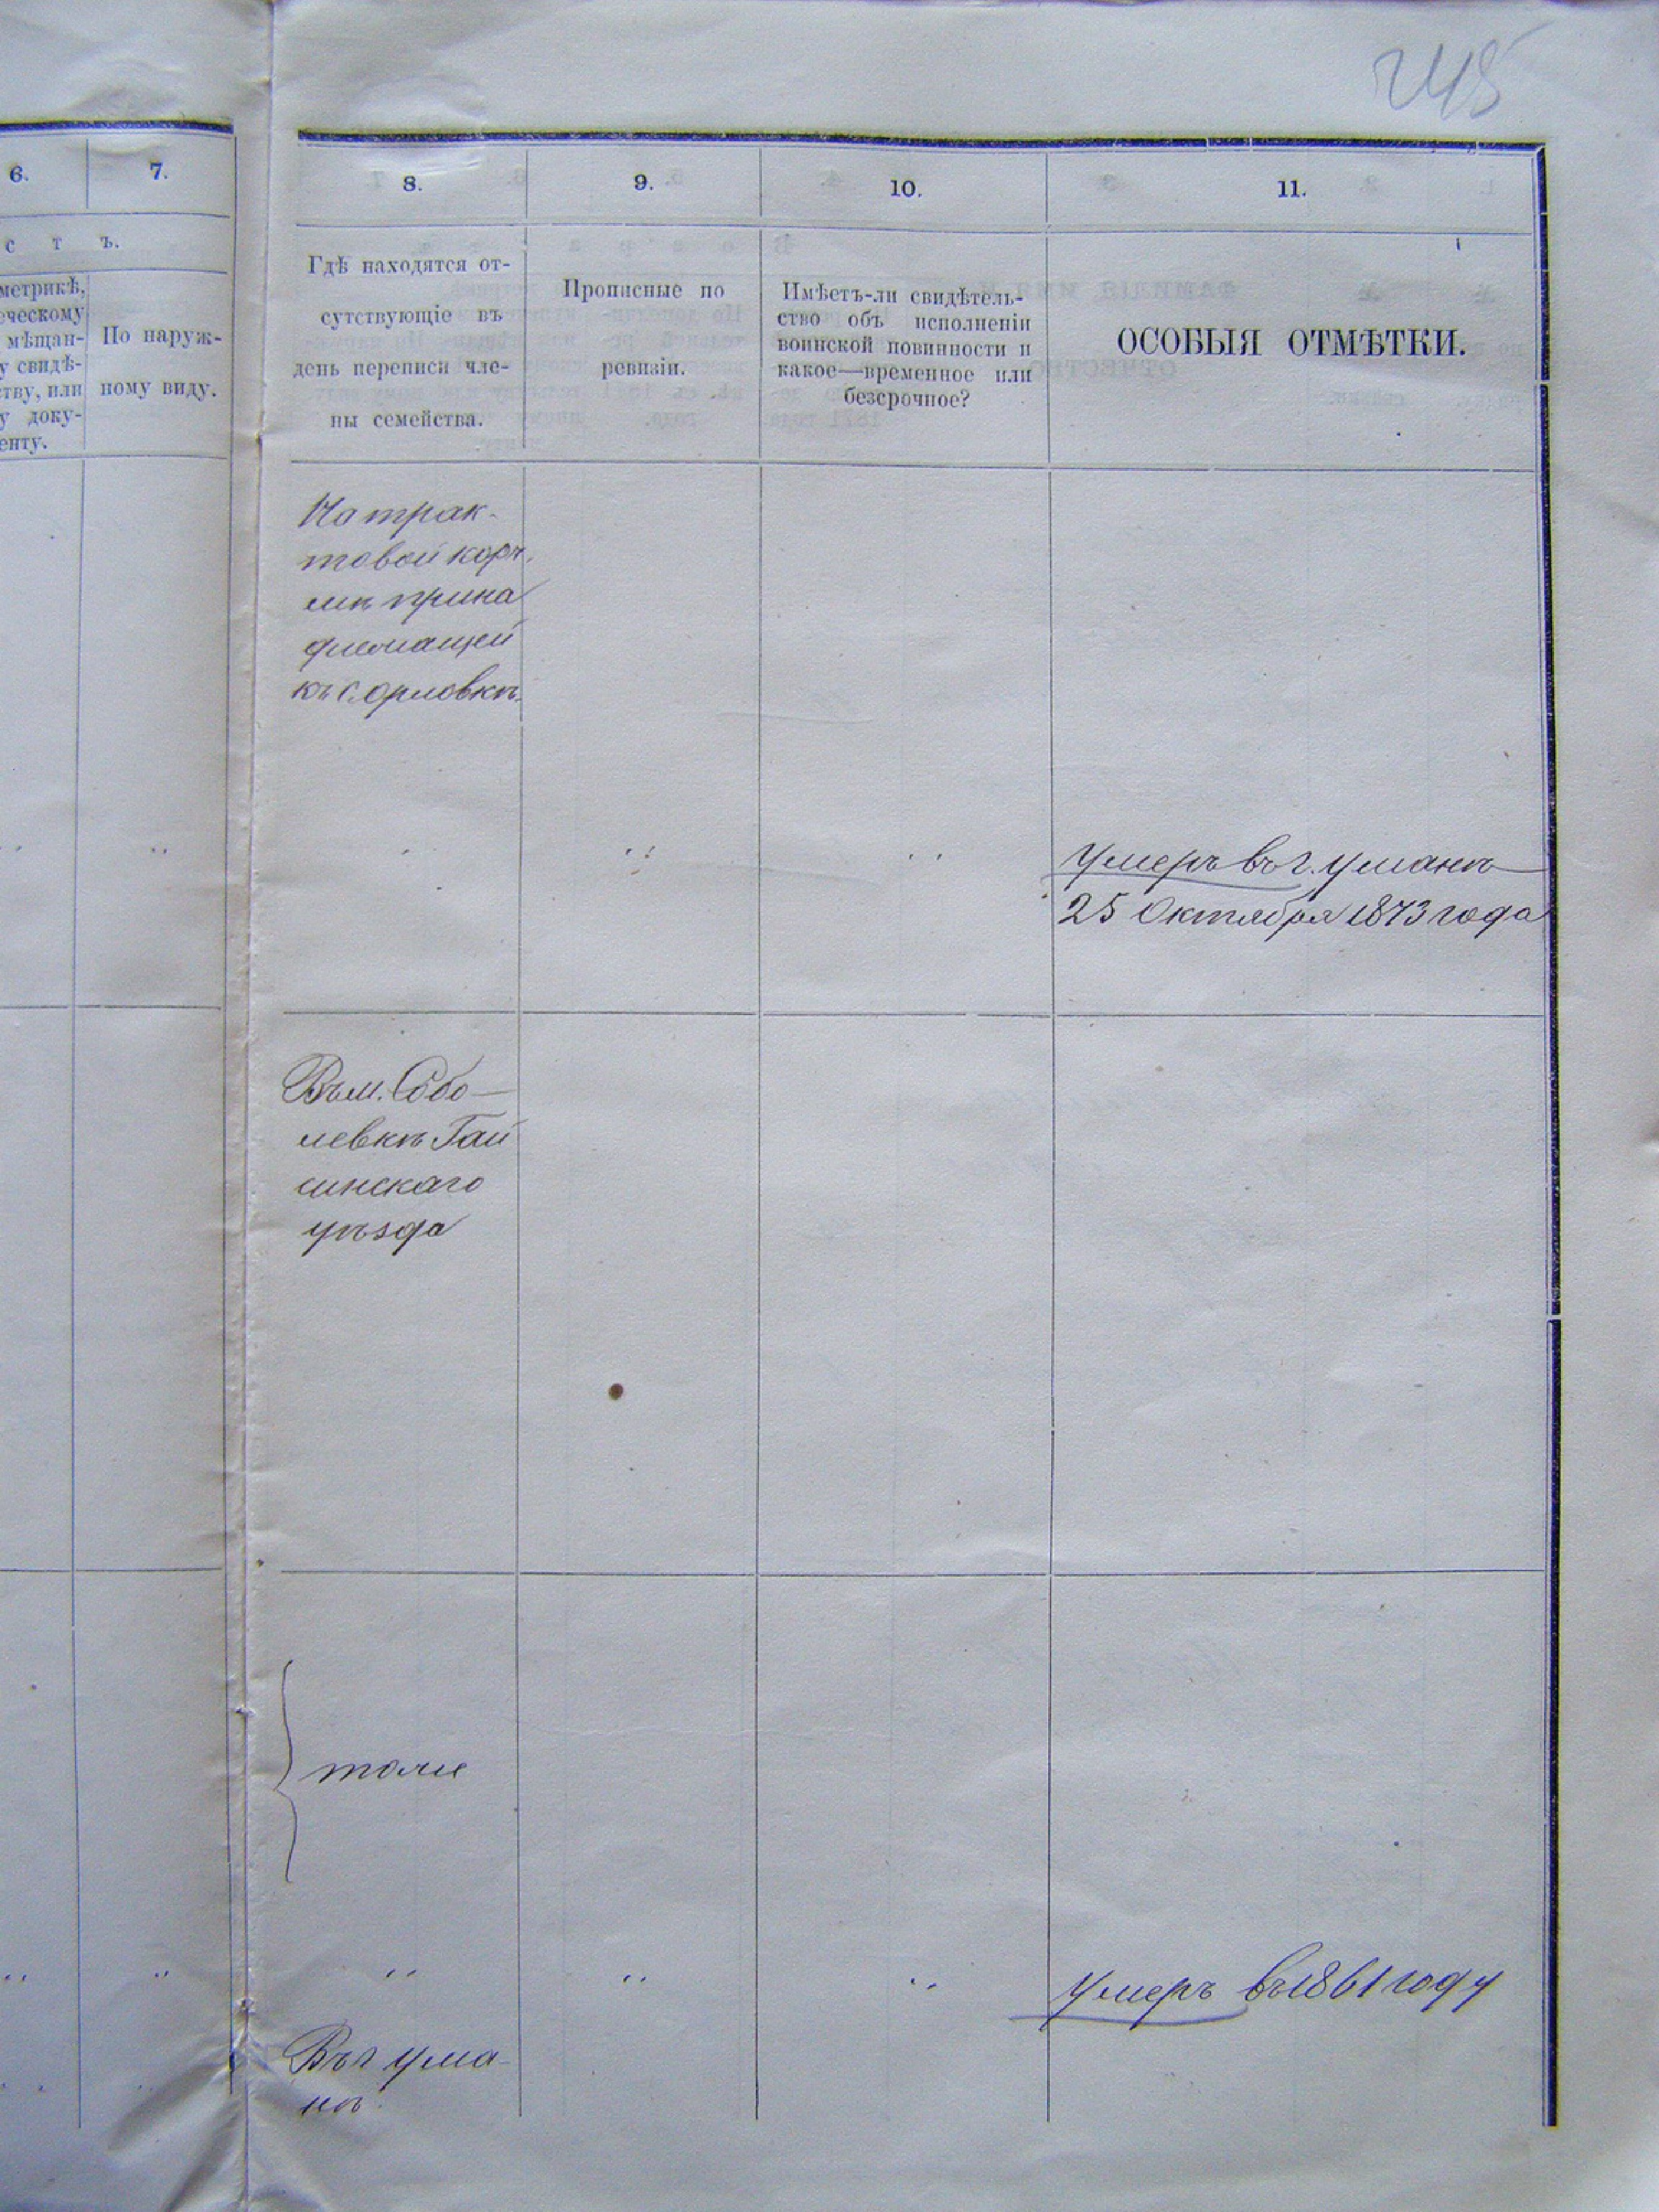 6.
7.
8.
9.
10.
11.
с т ъ.
метрикѣ,
ческому
мѣщан-
у свидѣ-
ству, или
у доку-
енту.
По наруж-
ному виду.
Гдѣ находятся от-
сутствующіе въ
день переписи чле-
ны семейства.
Прописные по
ревизіи.
Имѣетъ-ли свидѣтель-
ство объ исполненіи
воинской повинности и
какое—временное или
безсрочное?
ОСОБЫЯ ОТМѢТКИ.
На трак-
товой корч.
мѣ прина
длежащей
къ с. Орловкѣ.
Умеръ въ г. Уманѣ
25 Октября 1873 года
Въ м. Собо-
левкѣ Гай
синскаго
уѣзда
тоже
Умеръ въ 1861 году
Въ г Ума-
нѣ